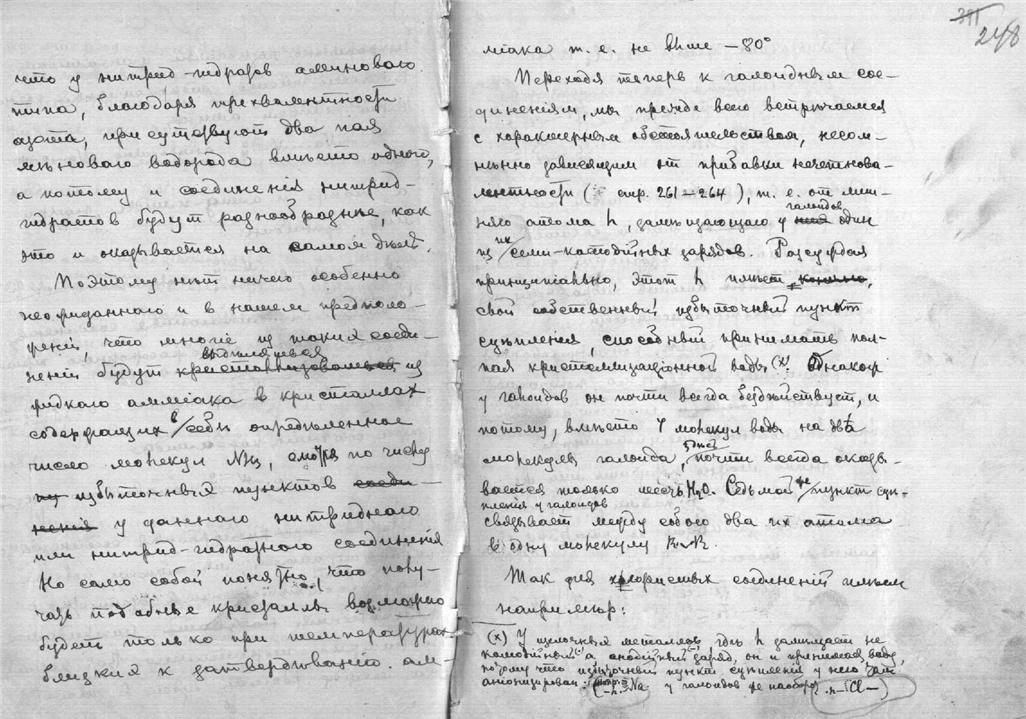 что у нитрид-гидратов аминоваго
типа, благодаря трехвалентности
азота, присутствуют два пая
аминоваго водорода вместо одного,
а потому и соединенія нитрид-
гидратов будут разнообразные, как
это и оказывается на самом деле.
Поэтому нет ничего особенно
неожиданнаго и в нашем предполо-
женіи что многие из таких соеди-
выделяться
неній будут кристаллизоваться из
жидкаго амміака в кристаллах
содержащих в себе определенное
число молекул NH₃, смотря по числу
избыточных пунктов соеди-
ненія у даннаго нитриднаго
или нитрид-гидратнаго соединенія
Но само собой понятно, что полу-
чать подобные кристаллы возможно
будет только при температурах
близких к затвердеванію ам-
391
248
міака т. е. не выше —80°
Переходя теперь к галоидным сое-
диненіям, мы прежде всего встречаемся
с характерным обстоятельством, несом-
ненно зависящим от прибавки нечетнова-
лентности (стр. 261—264), т. е. от лиш-
галоидов
няго атома h, замещающаго у них один
из их семи катодійных зарядов. Разсуждая
принципіально, этот h имеет конечно,
свой собственный избыточный пункт
сцепленія, способный принимать пол-
пая кристаллизаціонной воды (x). Однакож
у галоидов он почти всегда бездействует, и
потому, вместо 7 молекул воды на две
молекулы галоида, почти всегда оказы-
вается только шесть H₂O. Седьмой же пункт сце-
пленія у галоидов
связывает между собою два их атома
в одну молекулу
Так для хлористых соединеній имеем
например:
(x) У щелочных металлов, где h замещает не
катодійный а анодійный заряд, он и принимает воду,
потому что избыточный пункт сцепленія у него
анионизирован: Na у галоидов же наоборот -Cl-)